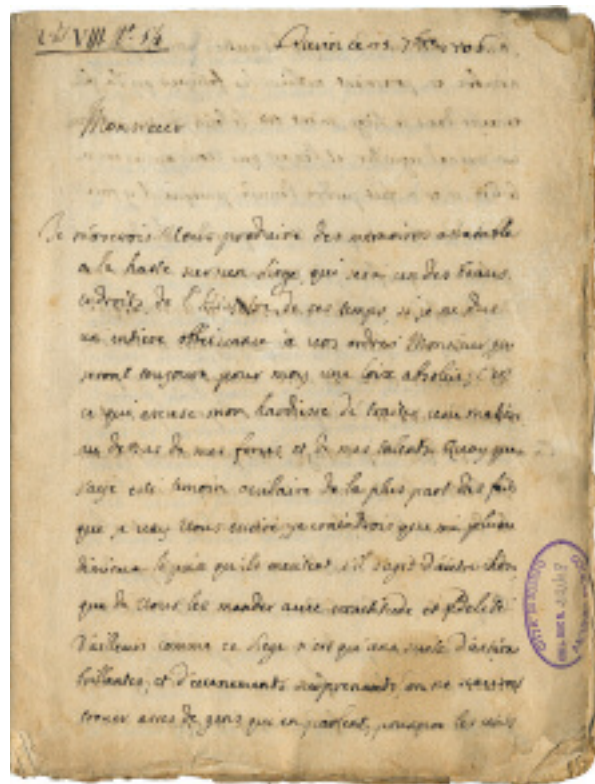 VIII N.º 54
Turin ce 15 7bre 1706
Monsieur
Je n'oserois vous produire des memoires assemblé
a la haste sur un siege, qui sera un des beaux
endroits de l'histoire de ces temps, si je ne dus
un entiere obeissance à vos ordres Monsieur qui
seront toujours pour moy une loix absolüe; c'est
ce qui excuse mon hardiesse de traiter une matiere
au dessus de mes forces et de mes talents. Quoy que
j'aye esté temoin oculaire de la plus part des faits
que je vay vous ecrire je craindrois que ma
diminua le prix qu'ils meritent, s'il s'agit d'autre chose
que de vous les mander avec exactitude et fidelité
D'ailleurs comme ce siege n'est qu'une suite d'actions
brillantes, et d'evenements surprenants, on ne
trouver assez de gens qui en parlent, pourquoi les